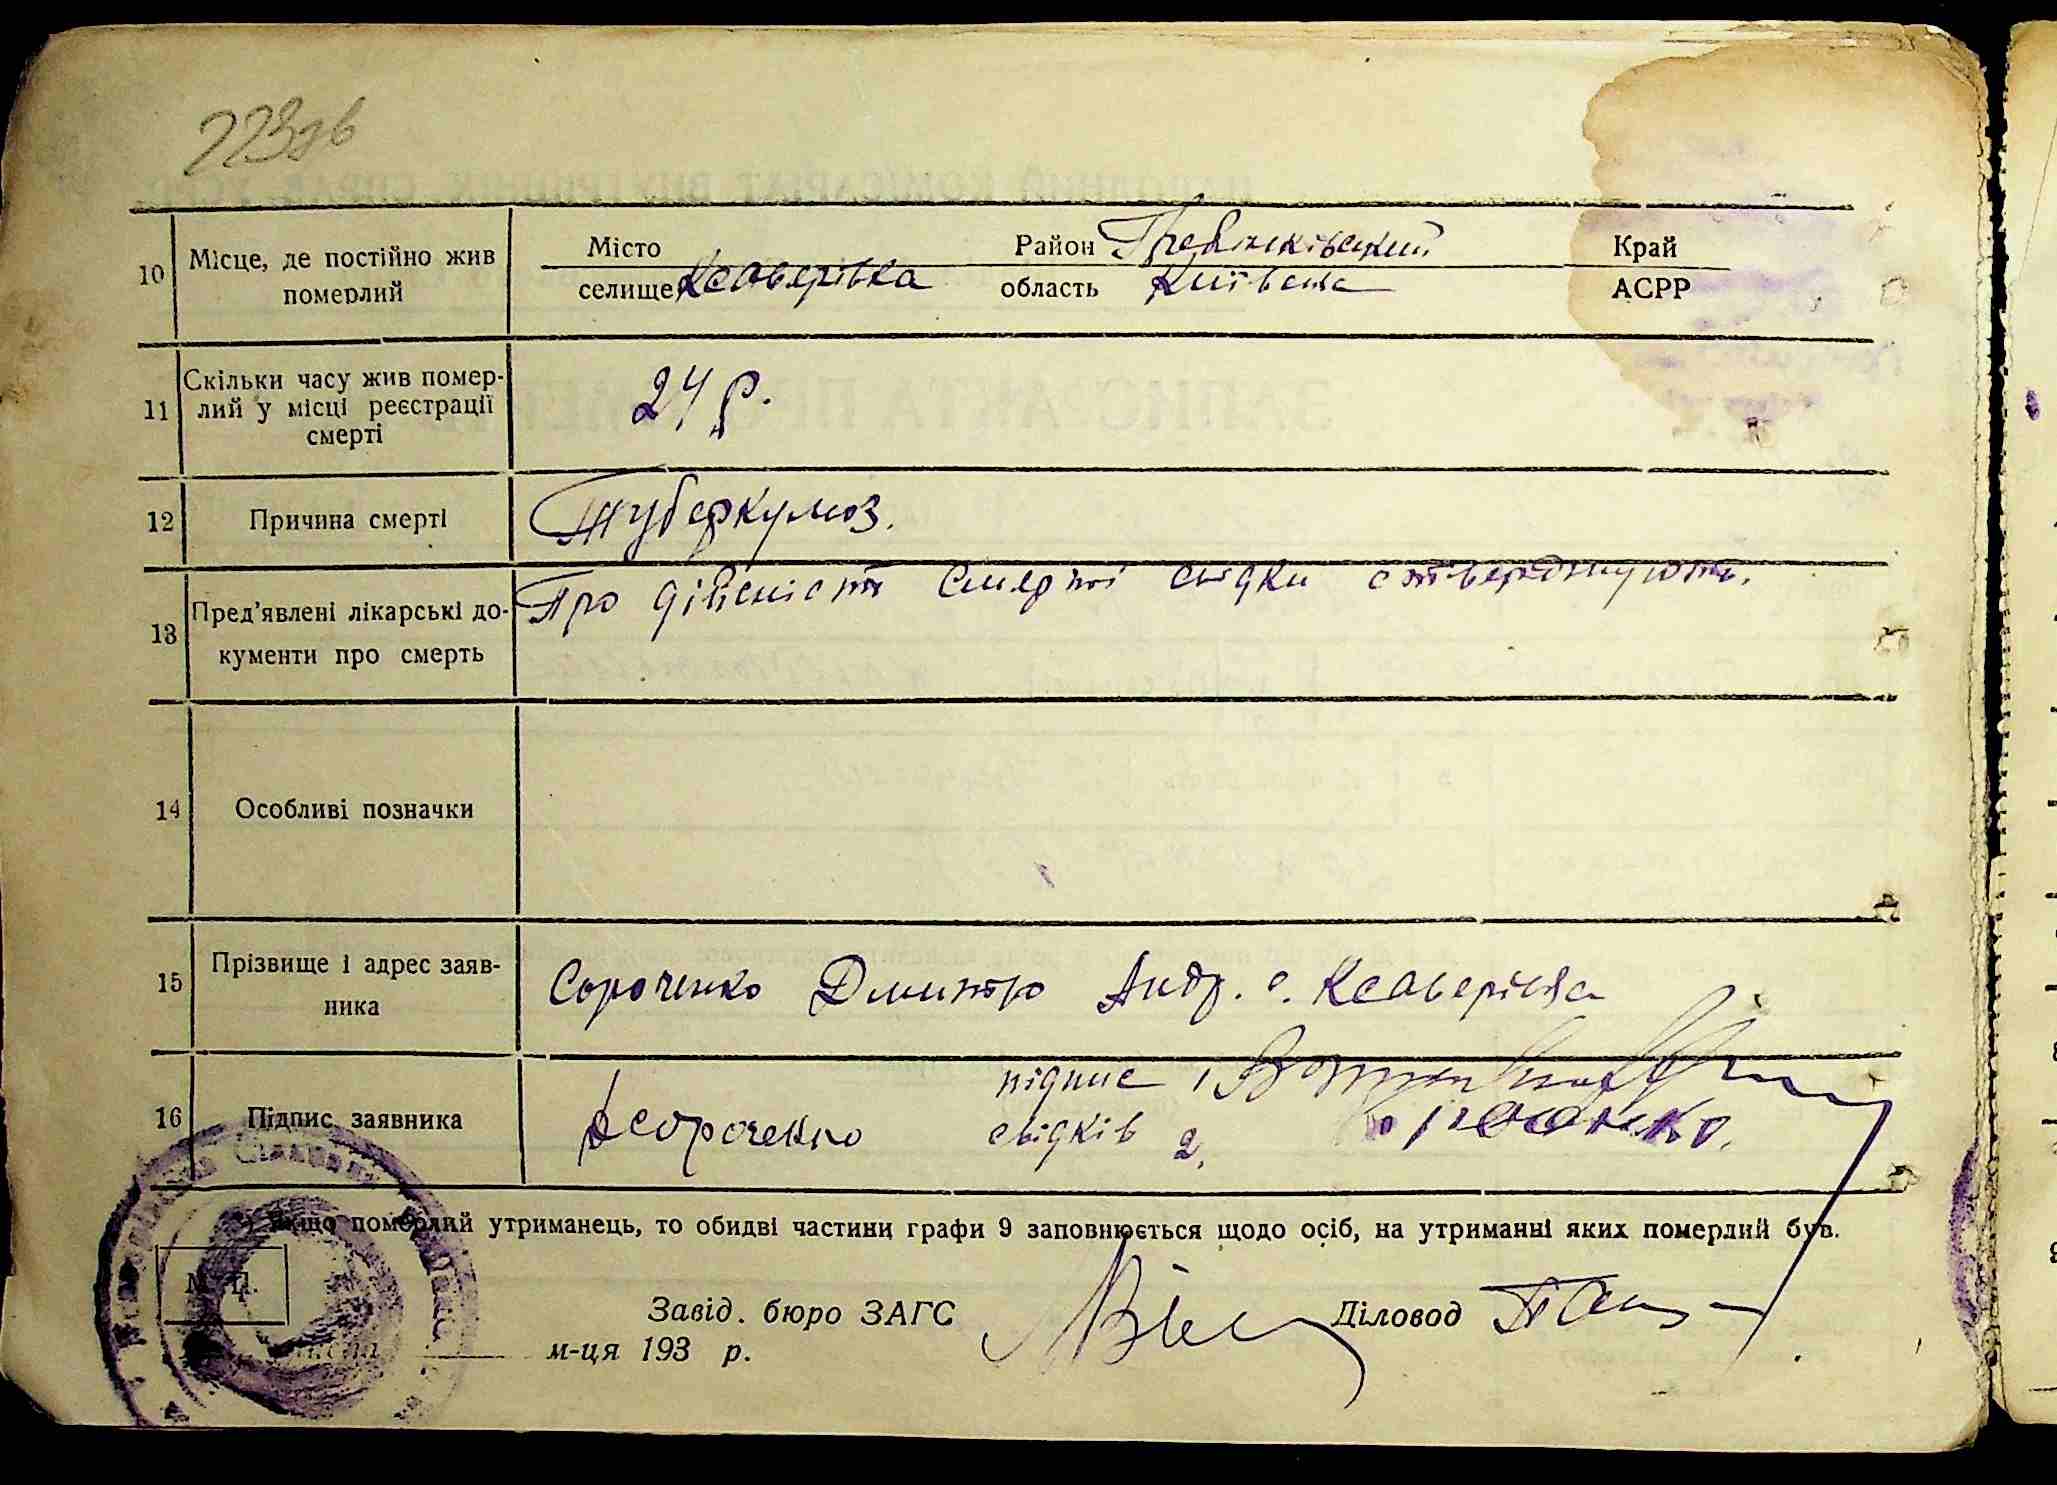 223зв
10 Місце, де постійно жив померлий
Місто Район Гребінківський Край
селище Ксаверівка область Київська АСРР
11 Скільки часу жив помер-
лий у місці реєстрації
смерті
24 р.
12 Причина смерті Туберкульоз.
13 Пред'явлені лікарські до-
кументи про смерть
Про дійсність смерті свідки стверджують.
14 Особливі позначки
15 Прізвище і адрес заяв-
ника
Сороченко Дмитро Андр. с. Ксаверівка
16 Підпис заявника
Д Сороченко
підпис 1
свідків 2.
*) Якщо померлий утриманець, то обидві частини графи 9 заповнюється щодо осіб, на утриманні яких померлий був.
М. П.
Завід. бюро ЗАГС Діловод
числа м-ця 193 р.